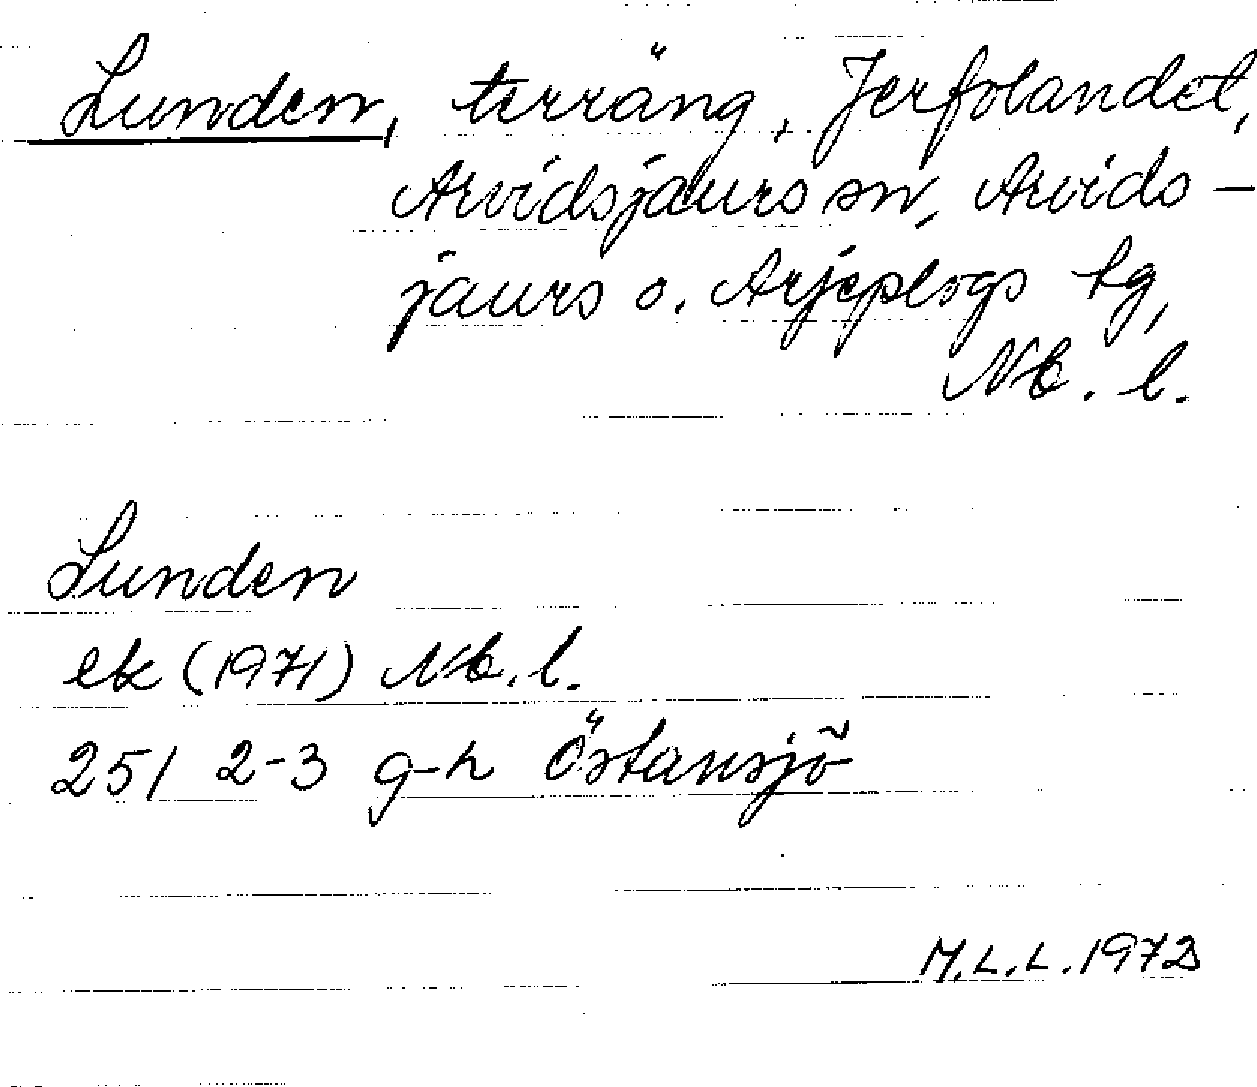 Lunden, terräng, Jerfolandet,
Arvidsjaurs sn, Arvids-
jaurs o. Arjeplogs tg,
Nb. l.
Lunden
ek (1971) Nb. l.
25I 2-3 g-h Östansjö
M.L.L. 1972